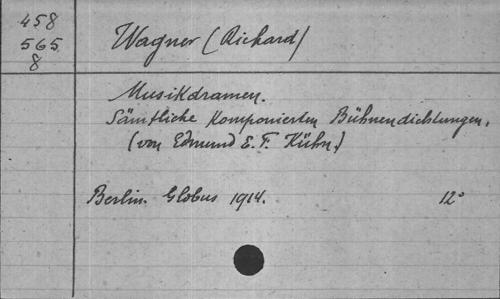 458
565
8
Wagner (Richard)
Musikdramen.
Sämtliche komponierten Bühnendichtungen.
(von Edmund E. F. Kühn.)
Berlin. Globus 1914. 12°